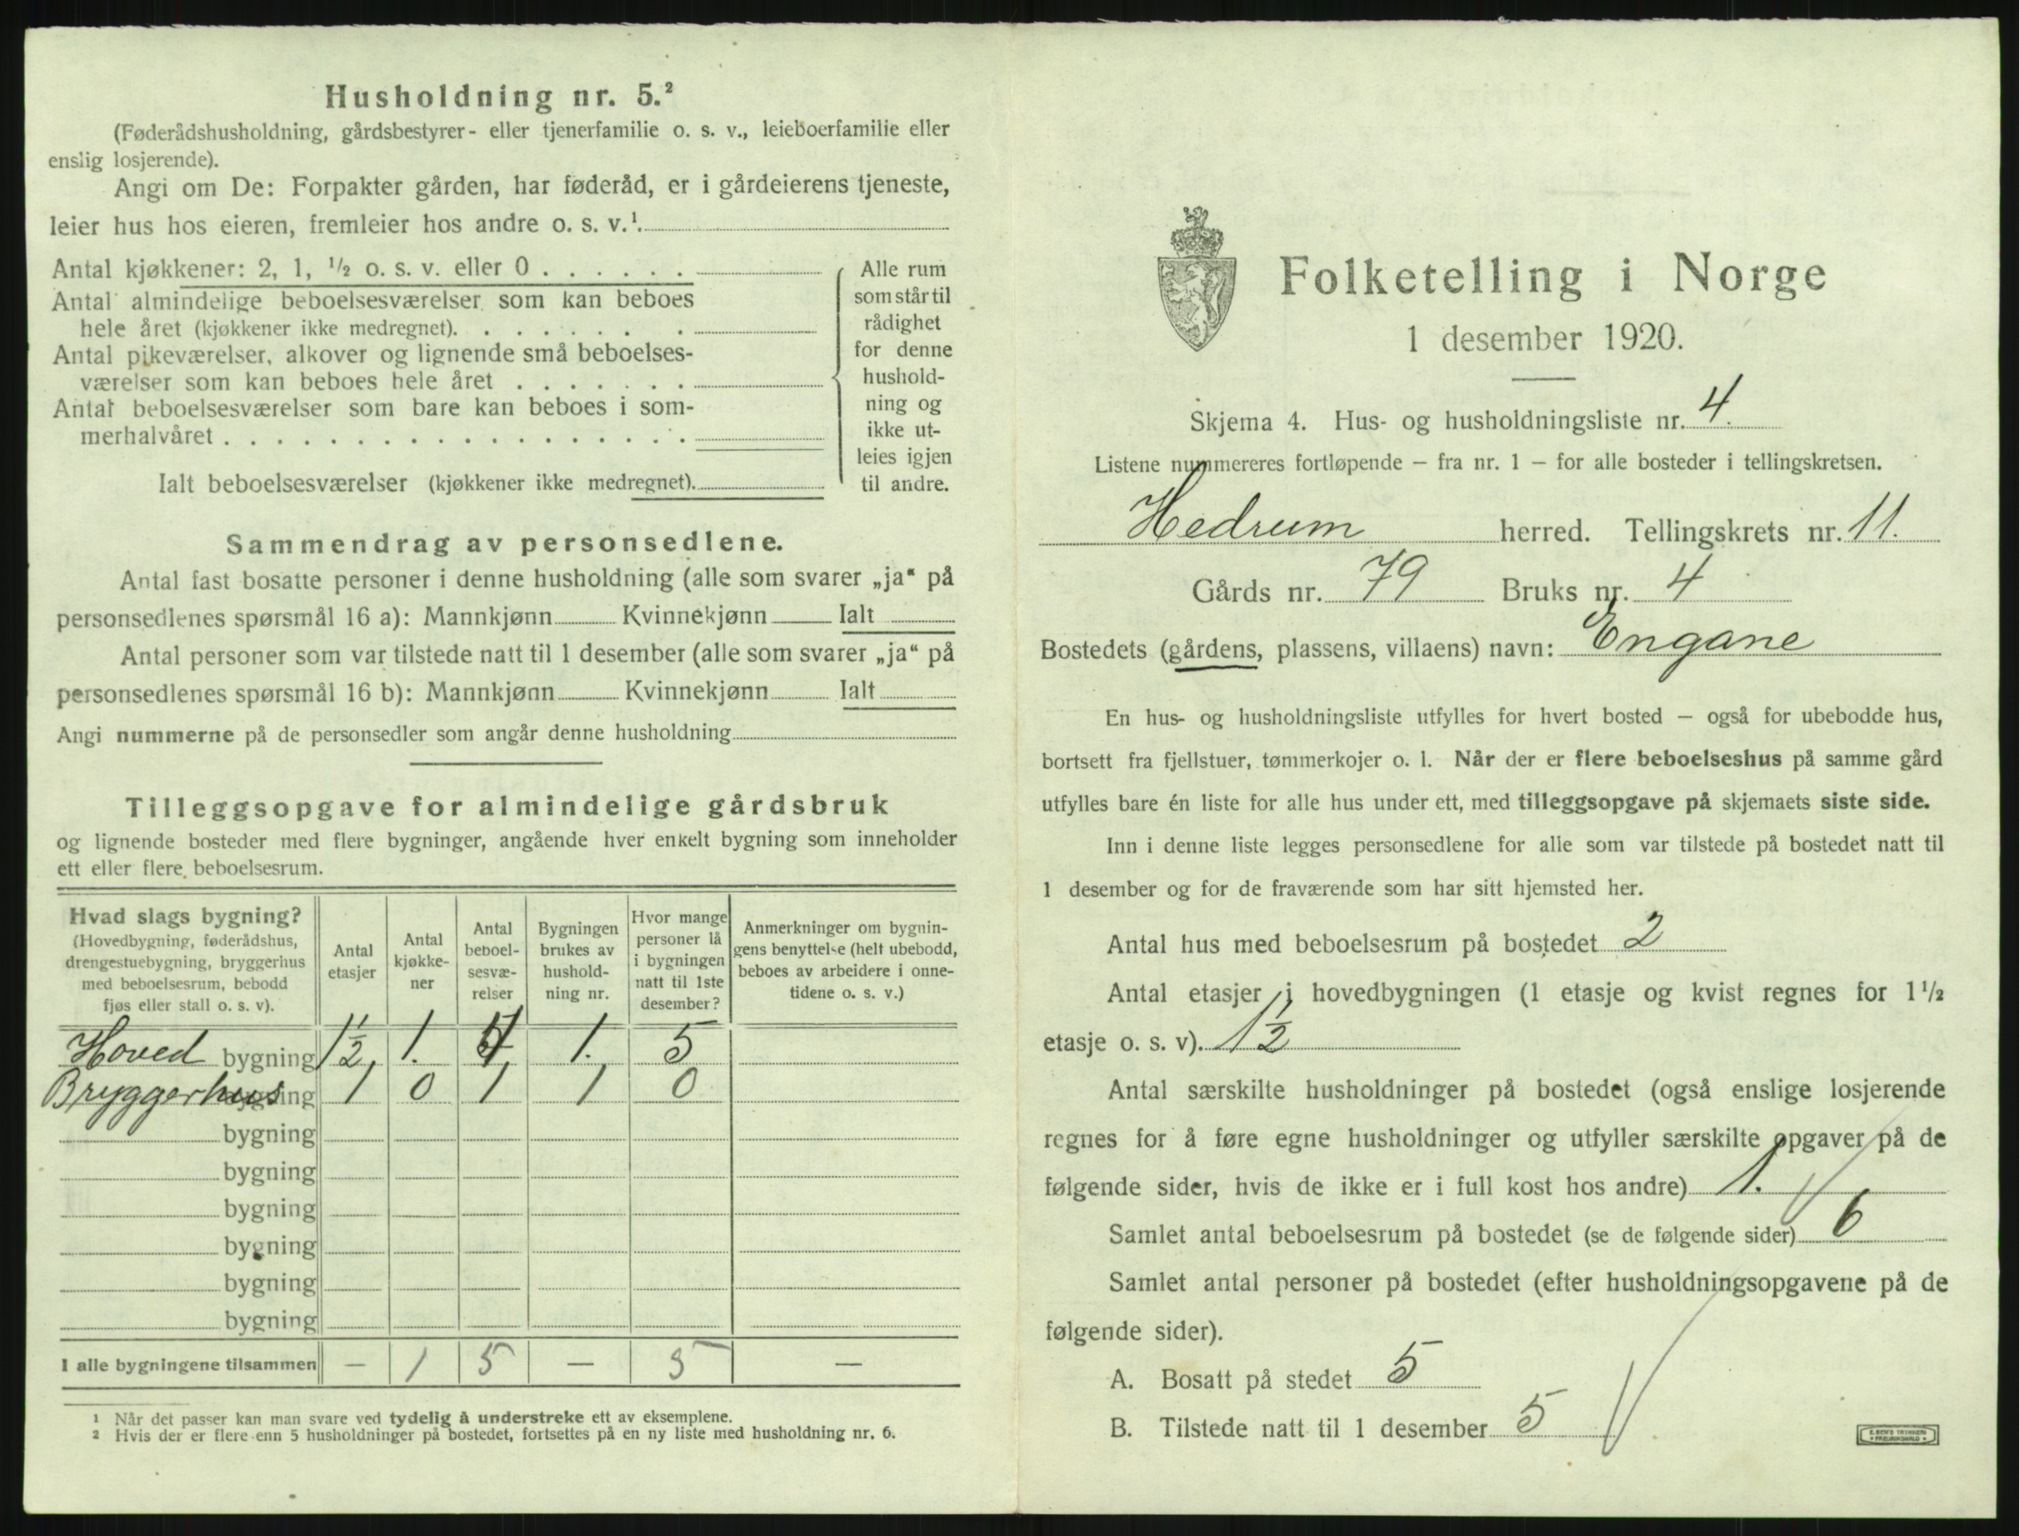 Husholdning nr. 5.²
(Føderådshusholdning, gårdsbestyrer- eller tjenerfamilie o. s. v., leieboerfamilie eller
enslig losjerende).
Angi om De: Forpakter gården, har føderåd, er i gårdeierens tjeneste,
leier hus hos eieren, fremleier hos andre o. s. v.¹.
Antal kjøkkener: 2, 1, ½ o. s. v. eller 0 . . . . . .
Antal almindelige beboelsesværelser som kan beboes
hele året (kjøkkener ikke medregnet). . . . . . . .
Antal pikeværelser, alkover og lignende små beboelses-
værelser som kan beboes hele året . . . . . . .
Antal beboelsesværelser som bare kan beboes i som-
merhalvåret . . . . . . . . . . . . . . . . . . .
Ialt beboelsesværelser (kjøkkener ikke medregnet).
Alle rum
som står til
rådighet
for denne
hushold-
ning og
ikke ut-
leies igjen
til andre.
Sammendrag av personsedlene.
Antal fast bosatte personer i denne husholdning (alle som svarer „ja“ på
personsedlenes spørsmål 16 a): Mannkjønn Kvinnekjønn Ialt
Antal personer som var tilstede natt til 1 desember (alle som svarer „ja“ på
personsedlenes spørsmål 16 b): Mannkjønn Kvinnekjønn Ialt
Angi nummerne på de personsedler som angår denne husholdning
Tilleggsopgave for almindelige gårdsbruk
og lignende bosteder med flere bygninger, angående hver enkelt bygning som inneholder
ett eller flere beboelsesrum.
Hvad slags bygning?
(Hovedbygning, føderådshus,
drengestuebygning, bryggerhus
med beboelsesrum, bebodd
fjøs eller stall o. s. v).
Antal
etasjer
Antal
kjøkke-
ner
Antal
beboel-
sesvæ-
relser
Bygningen
brukes av
hushold-
ning nr.
Hvor mange
personer lå
i bygningen
natt til 1ste
desember?
Anmerkninger om bygnin-
gens benyttelse (helt ubebodd,
beboes av arbeidere i onne-
tidene o. s. v.)
Hoved bygning 1½ 1. 4 1. 5
Bryggerhus bygning 1 0 1 1 0
bygning
bygning
bygning
bygning
bygning
bygning
I alle bygningene tilsammen — 1 5 — 5 —
¹ Når det passer kan man svare ved tydelig å understreke ett av eksemplene.
² Hvis der er flere enn 5 husholdninger på bostedet, fortsettes på en ny liste med husholdning nr. 6.
Folketelling i Norge
1 desember 1920.
Skjema 4. Hus- og husholdningsliste nr. 4.
Listene nummereres fortløpende — fra nr. 1 — for alle bosteder i tellingskretsen.
Hedrum herred. Tellingskrets nr. 11.
Gårds nr. 79 Bruks nr. 4
Bostedets (gårdens, plassens, villaens) navn: Engane
En hus- og husholdningsliste utfylles for hvert bosted — også for ubebodde hus,
bortsett fra fjellstuer, tømmerkojer o. l. Når der er flere beboelseshus på samme gård
utfylles bare én liste for alle hus under ett, med tilleggsopgave på skjemaets siste side.
Inn i denne liste legges personsedlene for alle som var tilstede på bostedet natt til
1 desember og for de fraværende som har sitt hjemsted her.
Antal hus med beboelsesrum på bostedet 2
Antal etasjer i hovedbygningen (1 etasje og kvist regnes for 1½
etasje o. s. v). 1½
Antal særskilte husholdninger på bostedet (også enslige losjerende
regnes for å føre egne husholdninger og utfyller særskilte opgaver på de
følgende sider, hvis de ikke er i full kost hos andre) 1.
Samlet antal beboelsesrum på bostedet (se de følgende sider) 6
Samlet antal personer på bostedet (efter husholdningsopgavene på de
følgende sider).
A. Bosatt på stedet 5
B. Tilstede natt til 1 desember 5